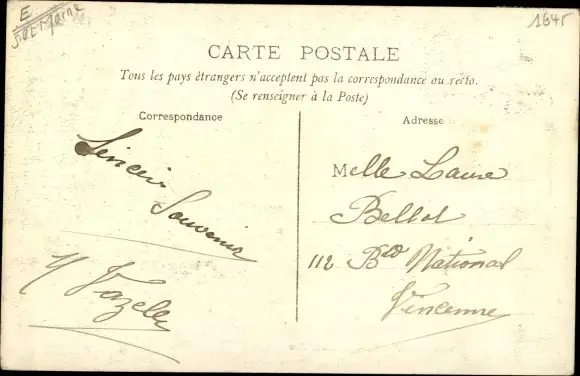 E
1645
CARTE POSTALE
Tous les pays étrangers n'acceptent pas la correspondance au recto.
(Se renseigner à la Poste)
Correspondance
Sincère
Souvenir
Adresse
Melle Laure
Bellot
112 Bd National
Vincenne